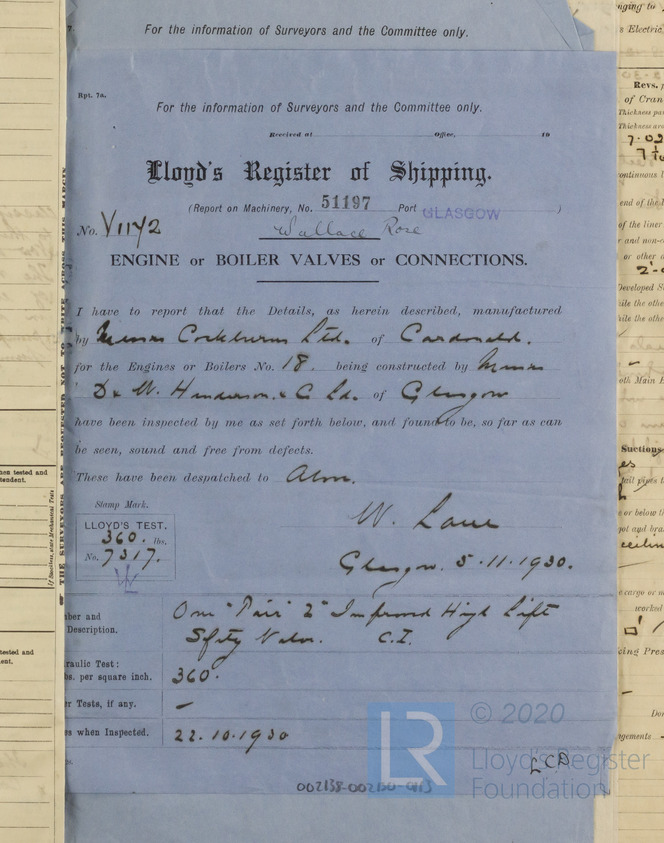 For the information of Surveyors and the Committee only.
Rpt. 7a.
For the information of Surveyors and the Committee only.
Received at Office, 19
Lloyd's Register of Shipping.
(Report on Machinery, No. 51197 Port GLASGOW )
No. V1142 Wallace Rose
ENGINE or BOILER VALVES or CONNECTIONS.
I have to report that the Details, as herein described, manufactured
by Messrs Cockburns Ltd. of Cardonald.
for the Engines or Boilers No. 18. being constructed by Messrs
D & W. Henderson & C Ld. of Glasgow
have been inspected by me as set forth below, and found to be, so far as can
be seen, sound and free from defects.
These have been despatched to Above.
Stamp Mark.
LLOYD'S TEST.
360. lbs.
No. 7317.
W.
Glasgow. 5.11.1930.
ber and Description.
One "Pair" 2" Improved High Lift
Safety Valves. C.I.
raulic Test:
bs. per square inch. 360.
r Tests, if any. –
s when Inspected. 22.10.1930
LR
© 2020
Lloyd's Register
Foundation
002138-002150-0413
THE SURVEYORS ARE REQUESTED NOT TO WRITE ACROSS THIS MARGIN
hen tested and
tendent.
tested and
ent.
nging to
s Electric
Revs.
of Cran
Thickness
7.02
continuous l
end of the
of the liner
r and non-
or other
Developed S
ile the othe
oth Main
Suctions
es
tail pipes
e or below th
got and bra
e cargo or
worked
Pres
Don
ngements